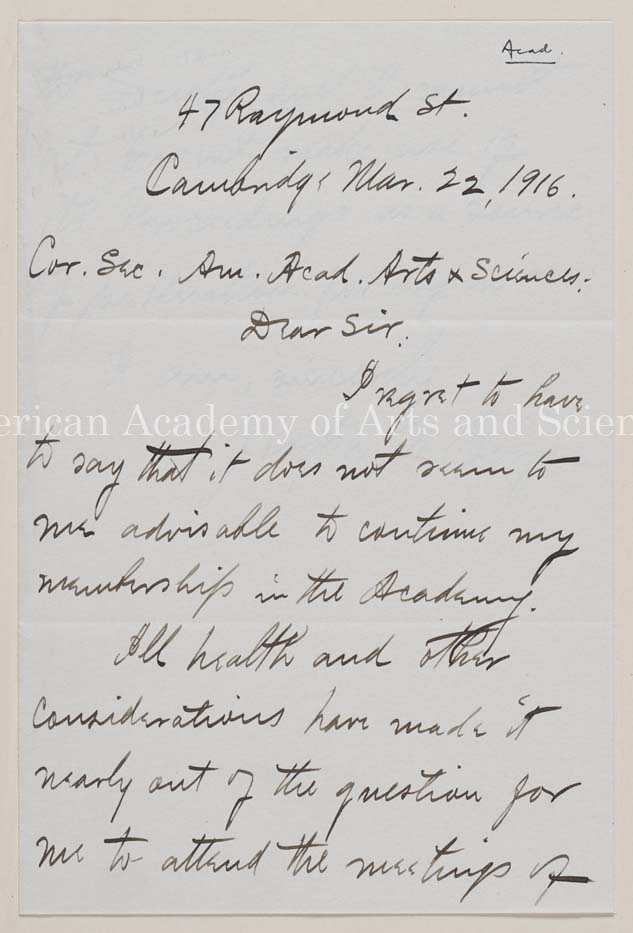 Acad.
47 Raymond St.
Cambridge Mar. 22, 1916.
Cor. Sec. Am. Acad. Arts & Sciences.
Dear Sir.
I regret to have
erican Academy of Arts and Scien
to say that it does not seem to
me advisable to continue my
membership in the Academy.
Ill health and other
considerations have made it
nearly out of the question for
me to attend the meetings of